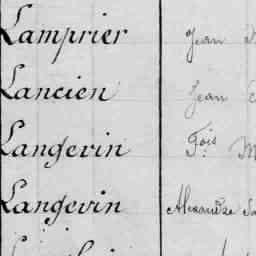 Lamprier Jean
Lancien Jean
Langevin Fois M
Langevin Alexandre